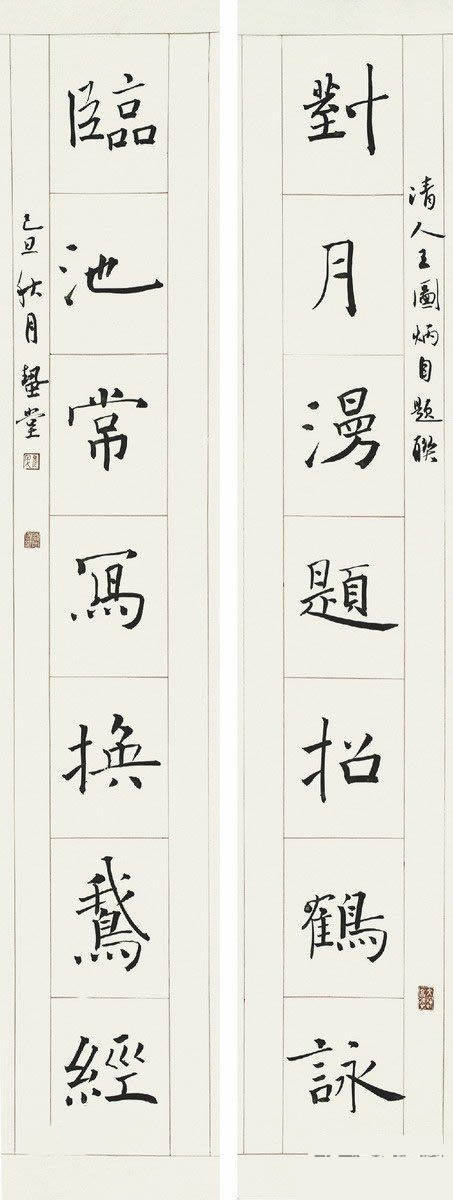 清人王圖炳自題聯
對月漫題招鶴詠
臨池常寫換鵝經
己丑秋月蟄堂